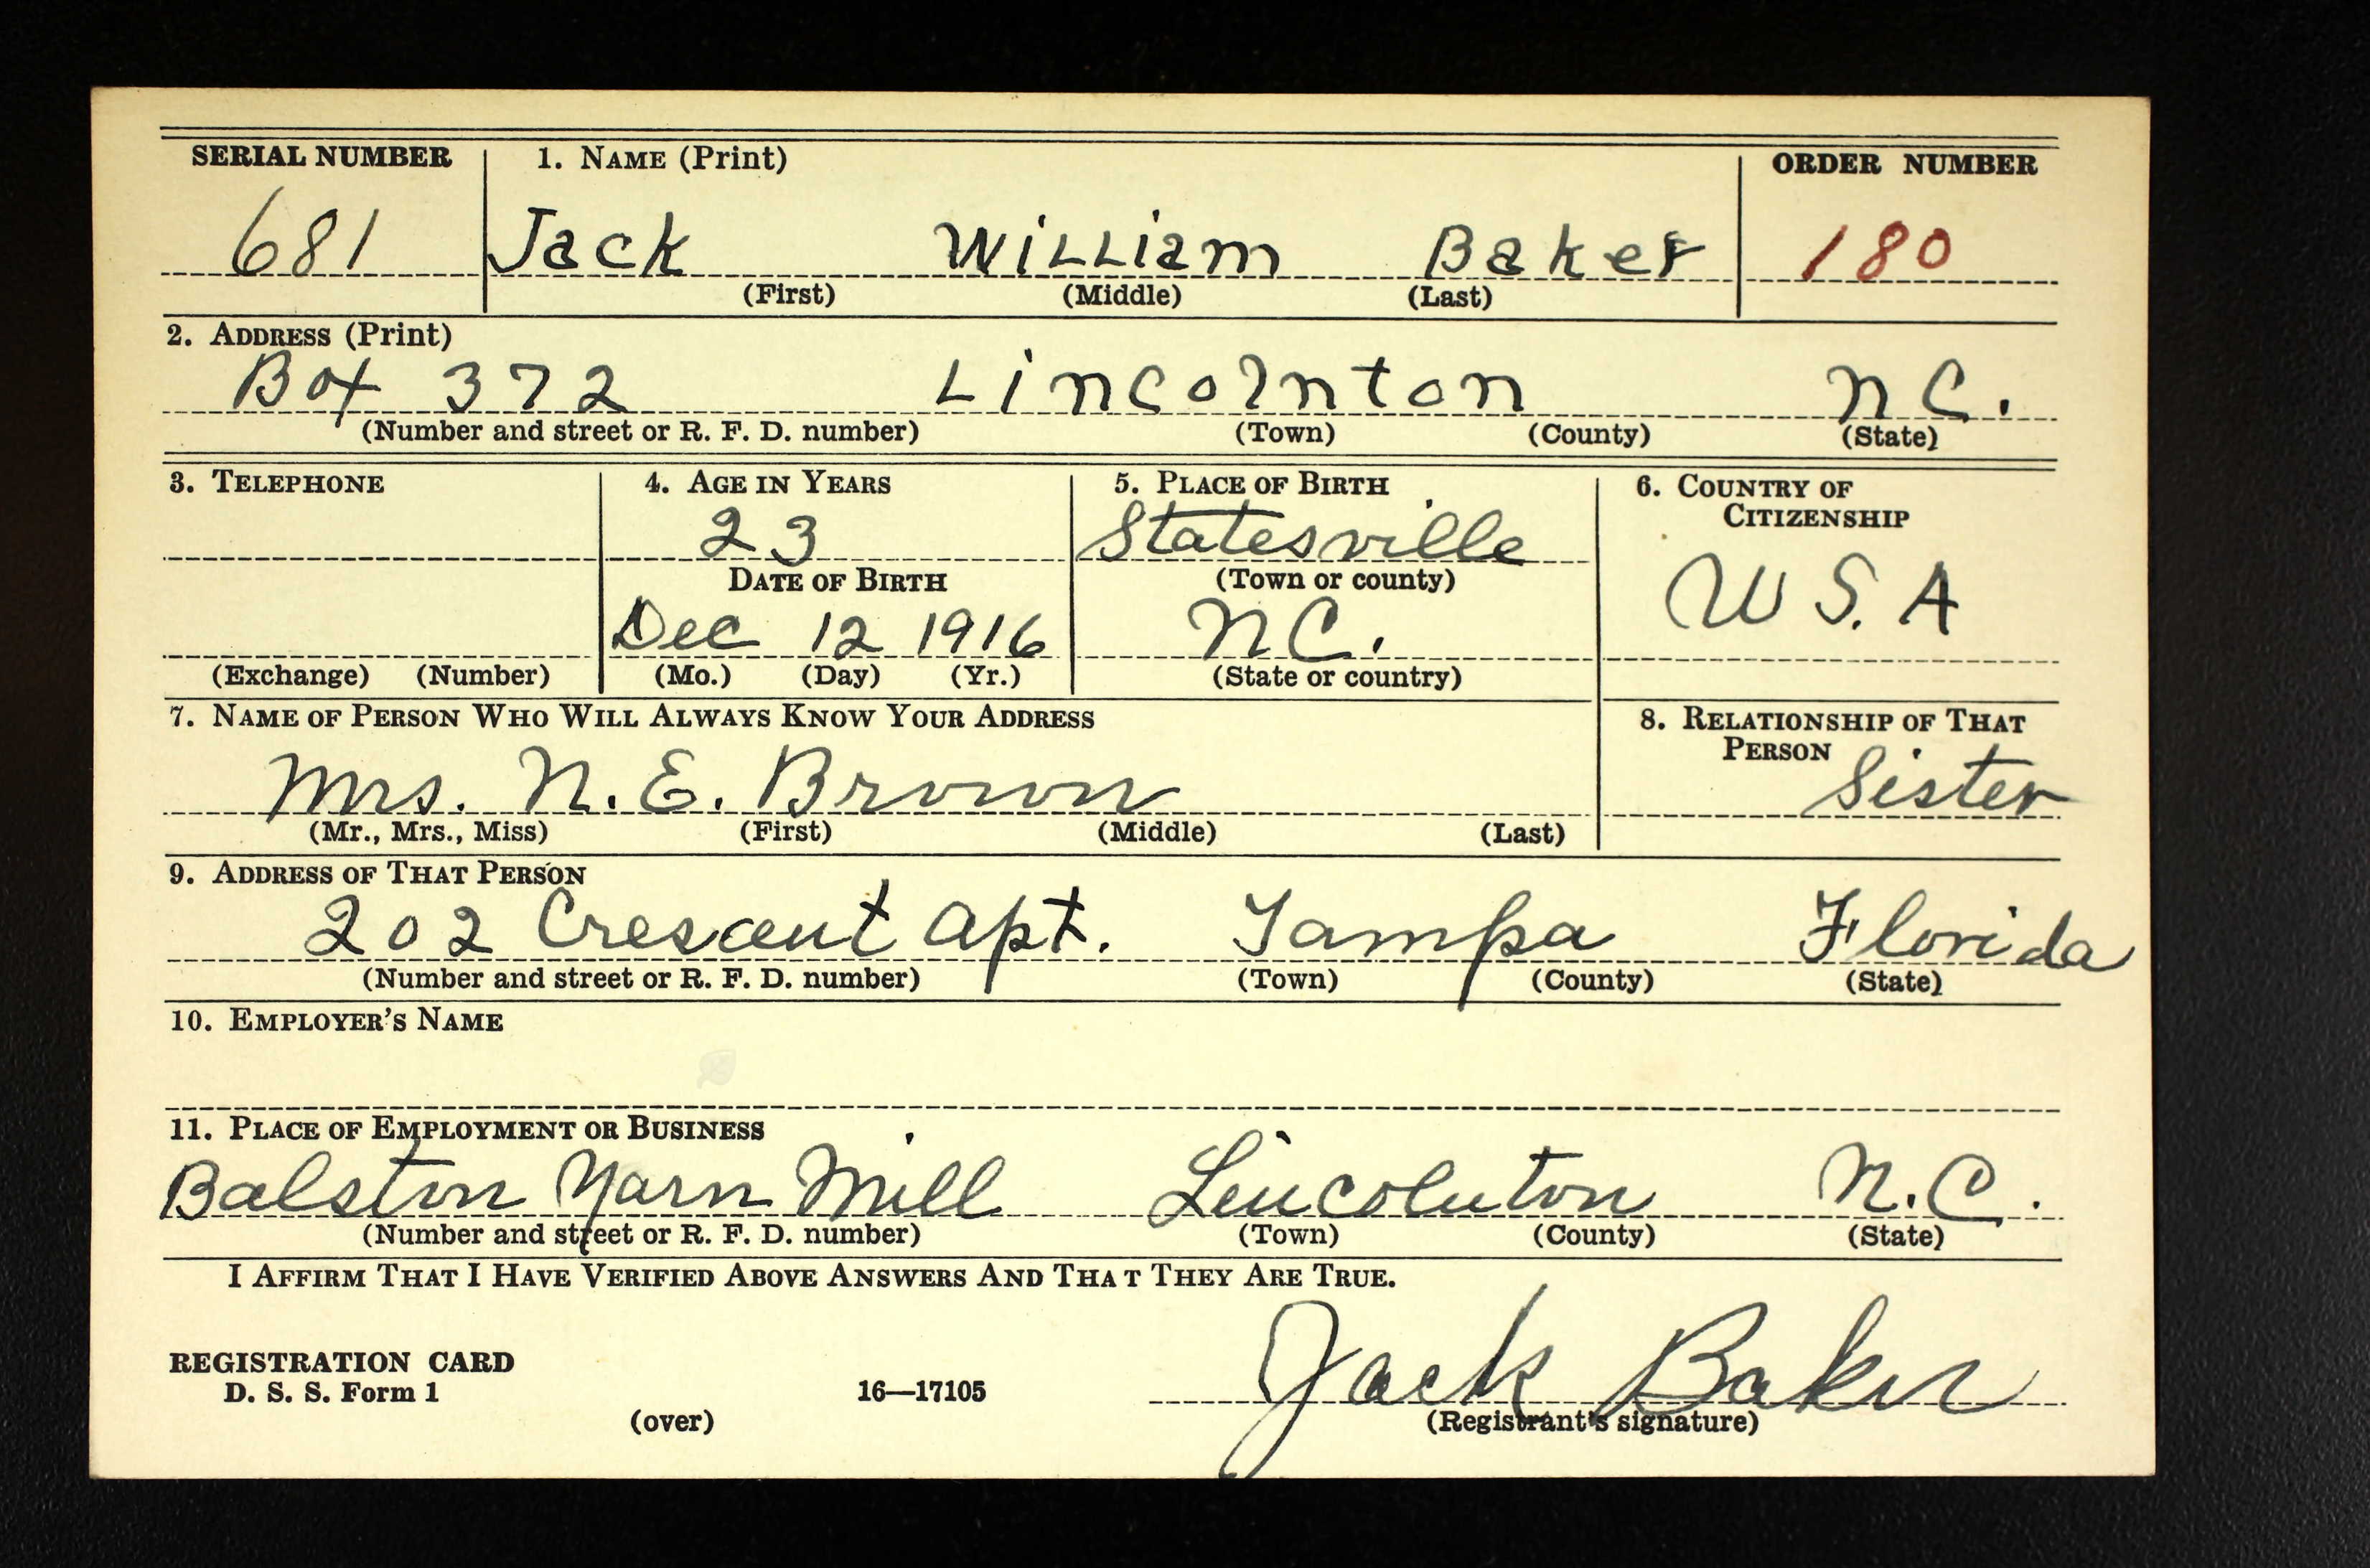 SERIAL NUMBER 1. NAME (Print) ORDER NUMBER
681 Jack William Baker 180
(First) (Middle) (Last)
2. ADDRESS (Print)
Box 372 Lincolnton NC.
(Number and street or R. F. D. number) (Town) (County) (State)
3. TELEPHONE 4. AGE IN YEARS 5. PLACE OF BIRTH 6. COUNTRY OF
CITIZENSHIP
23 Statesville
DATE OF BIRTH (Town or county)
U S. A
Dec 12 1916 NC.
(Exchange) (Number) (Mo.) (Day) (Yr.) (State or country)
7. NAME OF PERSON WHO WILL ALWAYS KNOW YOUR ADDRESS 8. RELATIONSHIP OF THAT
PERSON
Mrs. N. E. Brown Sister
(Mr., Mrs., Miss) (First) (Middle) (Last)
9. ADDRESS OF THAT PERSON
202 Crescent apt. Tampa Florida
(Number and street or R. F. D. number) (Town) (County) (State)
10. EMPLOYER'S NAME
11. PLACE OF EMPLOYMENT OR BUSINESS
Balston Yarn Mill Lincolnton N.C.
(Number and street or R. F. D. number) (Town) (County) (State)
I AFFIRM THAT I HAVE VERIFIED ABOVE ANSWERS AND THAT THEY ARE TRUE.
Jack Baker
REGISTRATION CARD
D. S. S. Form 1 16—17105
(over) (Registrant's signature)